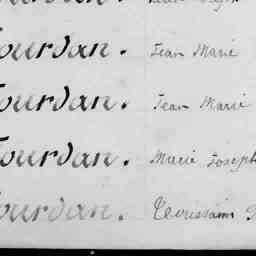 Jourdan. Jean Marie
Jourdan. Jean Marie
Jourdan. Marie Joseph
Jourdan. Toussaint